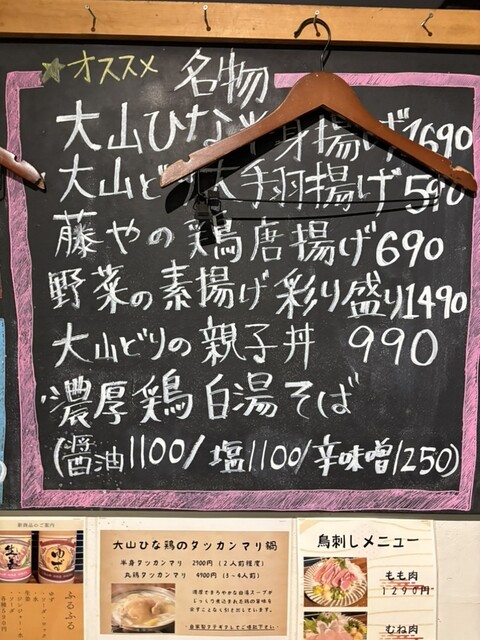 ☆オススメ 名物
大山ひな 身揚げ 1690
大山ど 手羽揚げ 590
藤やの鶏唐揚げ 690
野菜の素揚げ彩り盛り1490
大山どりの親子丼 990
濃厚鶏白湯そば
(醤油1100/塩1100/辛味噌1250)
新商品のご案内
生姜
ゆず
ふるふる
大山ひな鶏のタッカンマリ鍋
半身タッカンマリ 2900円(2人前程度)
丸鶏タッカンマリ 4900円(3~4人前)
鳥刺しメニュー
もも肉
1290円
むね肉